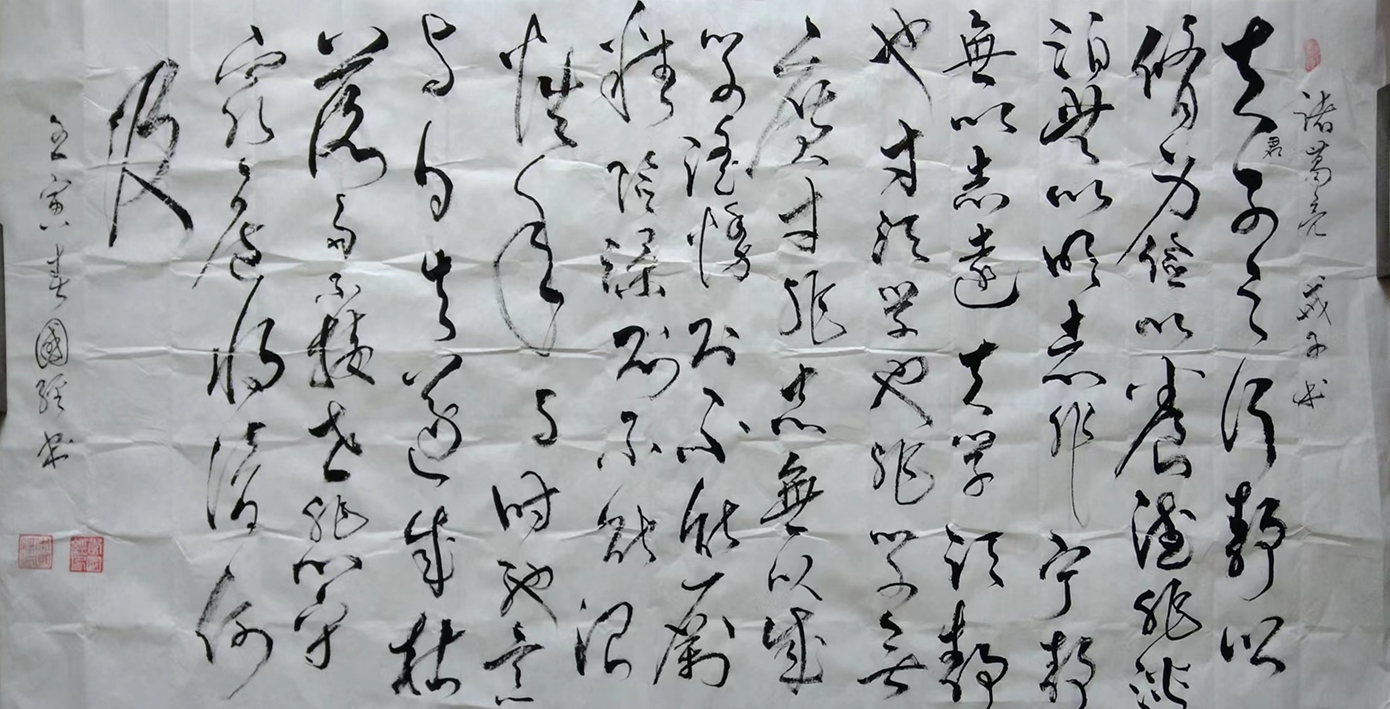 诸葛亮 诫子书
夫君子之行静以
修身俭以养德非淡
泊無以明志非宁静
無以志遠夫学须静
也才须学也非学无
廣才非志無以成
学淫慢则不能励
精险躁则不能治
性年与时驰意
与日去遂成枯
落多不接世悲守
穷之庐将復何
及
壬寅春國经书